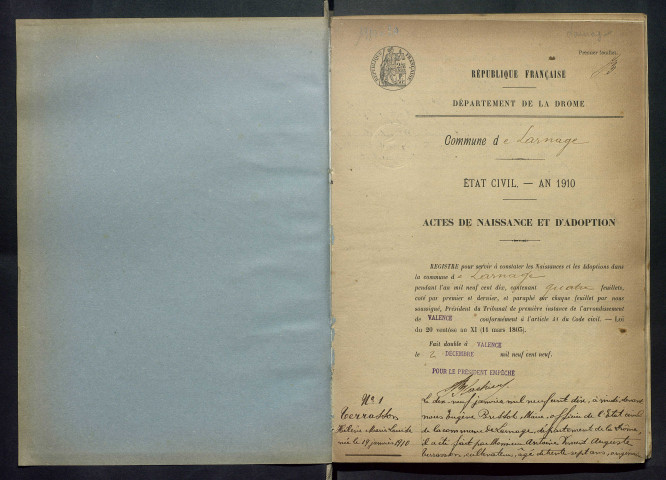 Premier feuillet
RÉPUBLIQUE FRANÇAISE
RÉPUBLIQUE FRANÇAISE
DÉPARTEMENT DE LA DROME
Commune de Larnage
ÉTAT CIVIL. — AN 1910
ACTES DE NAISSANCE ET D'ADOPTION
REGISTRE pour servir à constater les Naissances et les Adoptions dans
la commune de Larnage
pendant l'an mil neuf cent dix, contenant quatre feuillets,
coté par premier et dernier, et paraphé sur chaque feuillet par nous
soussigné, Président du Tribunal de première instance de l'arrondissement
de VALENCE conformément à l'article 41 du Code civil. — Loi
du 20 ventôse an XI (11 mars 1803).
Fait double à VALENCE
le 2 DECEMBRE mil neuf cent neuf.
POUR LE PRÉSIDENT EMPÊCHÉ
N° 1
Terrasson
Hélène Marie Laurde
née le 19 janvier 1910
Le dix neuf janvier mil neuf cent dix, à devant
nous Eugène Maire, officier de l'Etat civil
de la commune de Larnage, département de la Drôme,
il a été fait par Monsieur Antoine Auguste
Terrasson, cultivateur, âgé de trente sept ans,